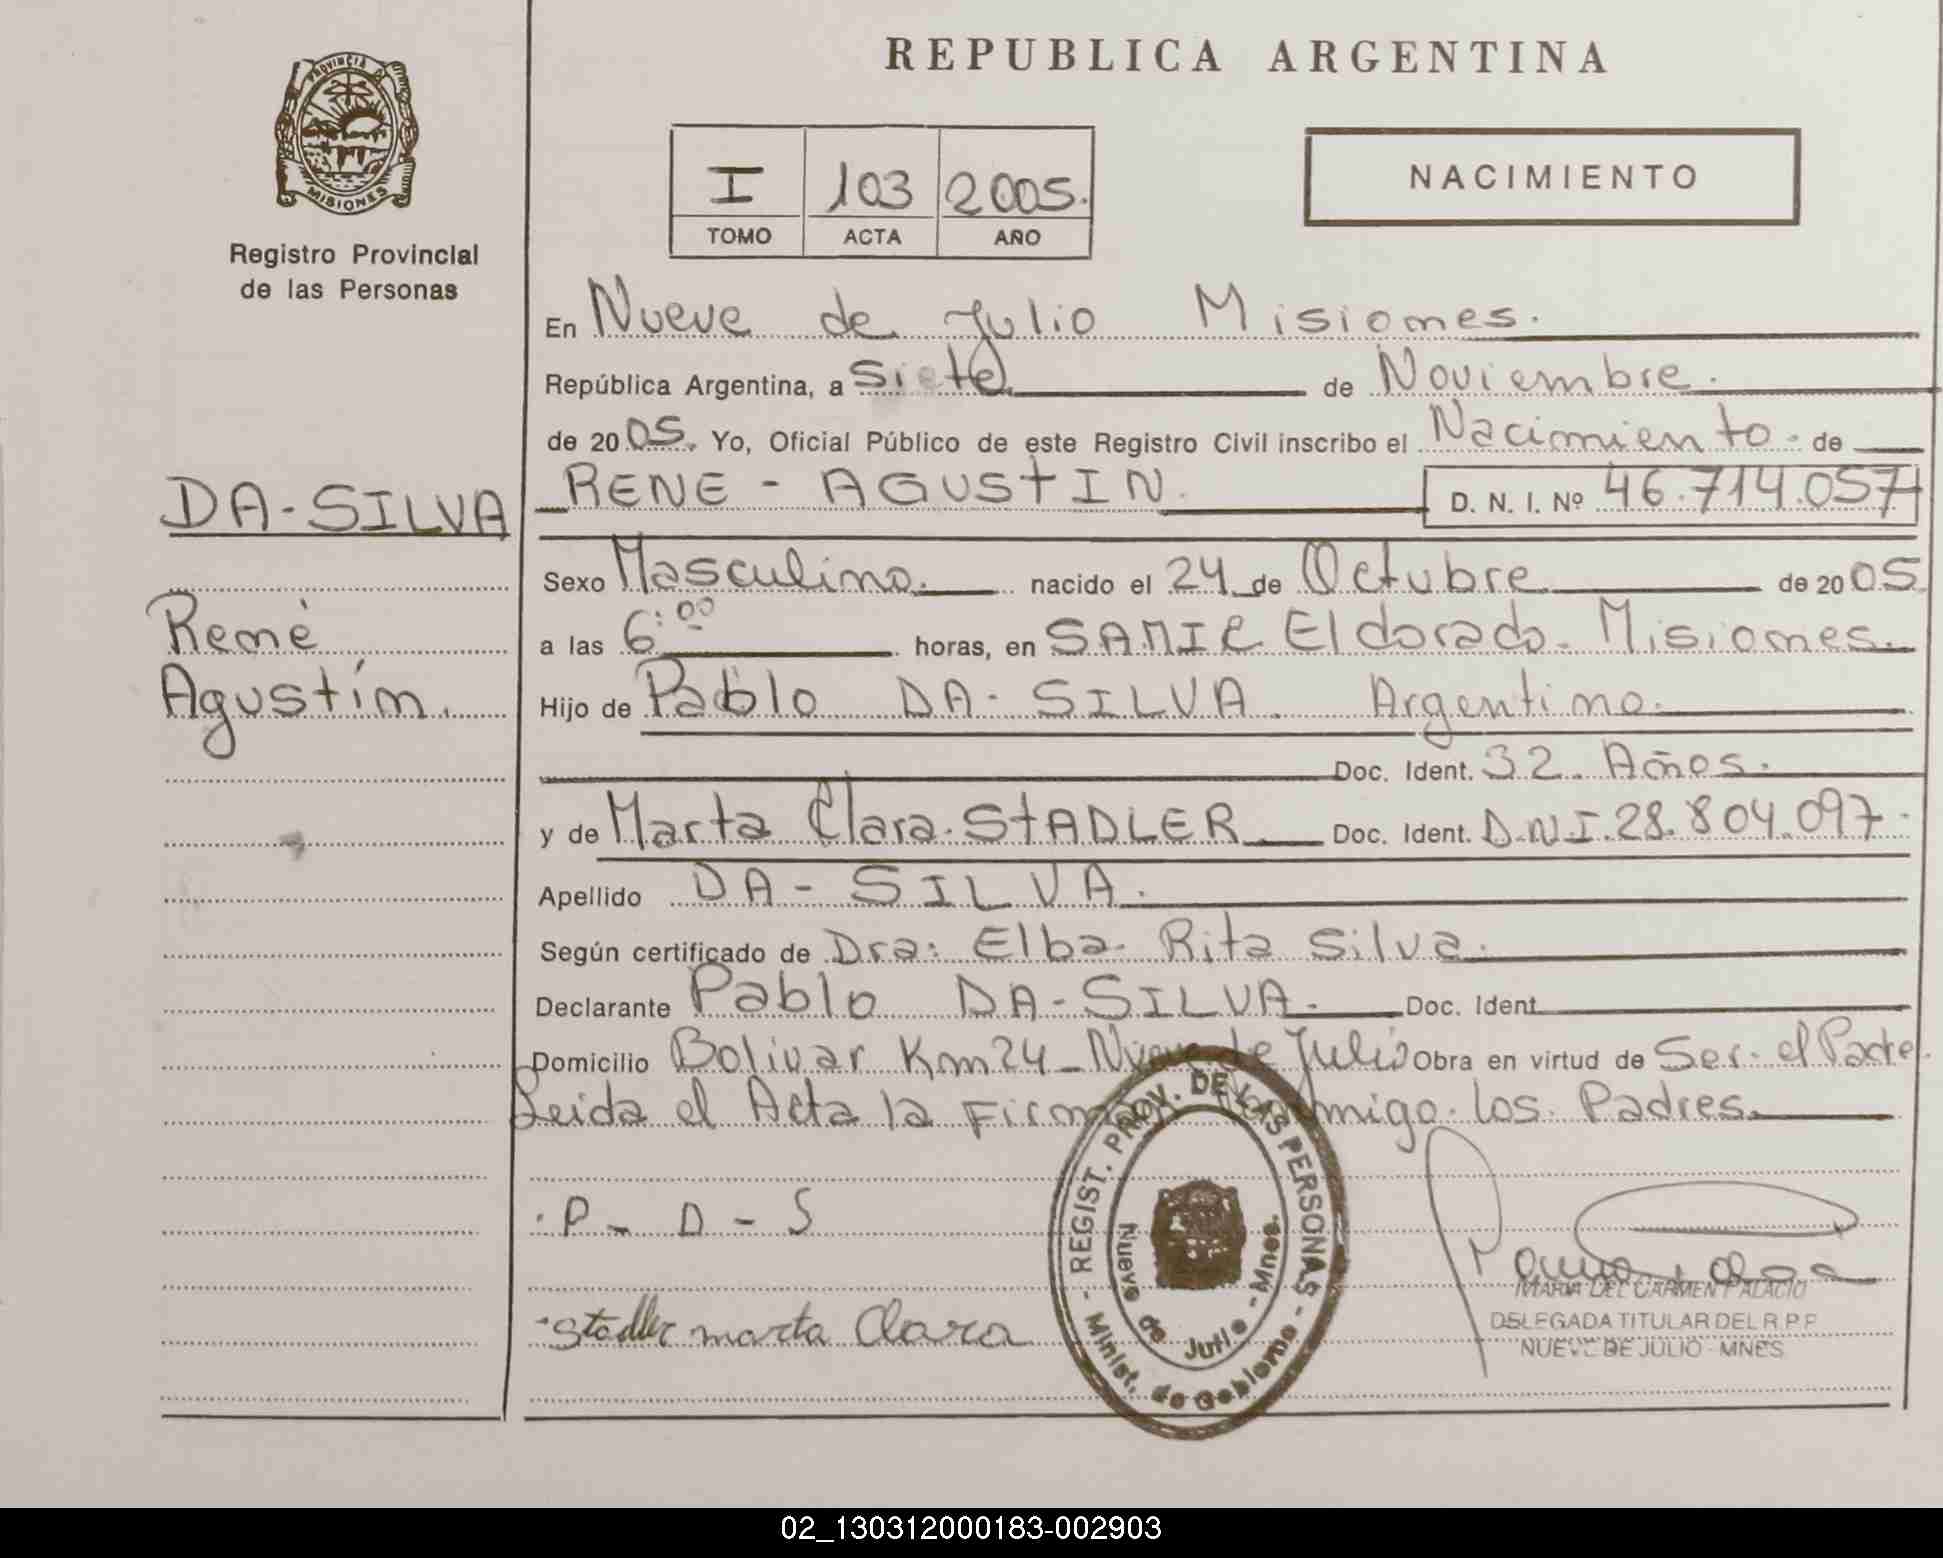 PROVINCIA DE
MISIONES
Registro Provincial
de las Personas
DA-SILVA
René
Agustín.
REPUBLICA ARGENTINA
I 103 2005.
TOMO ACTA AÑO
NACIMIENTO
En Nueve de Julio Misiones.
República Argentina, a Siete de Noviembre.
de 2005. Yo, Oficial Público de este Registro Civil inscribo el Nacimiento. de
RENE - AGUSTIN. D. N. I. Nº 46.714.057
Sexo Masculino. nacido el 24 de Octubre de 2005
a las 6:00 horas, en SAMIC Eldorado. Misiones.
Hijo de Pablo DA-SILVA. Argentino.
Doc. Ident. 32 Años.
y de Marta Clara STADLER Doc. Ident. D.N.I. 28.804.097.
Apellido DA-SILVA.
Según certificado de Dra: Elba Rita Silva.
Declarante Pablo DA-SILVA. Doc. Ident.
Domicilio Bolivar Km24_Nueve de Julio Obra en virtud de Ser el Padre.
Leida el Acta la Firman Conmigo los Padres.
P - D - S
Stadler marta Clara
REGIST. PROV. DE LAS PERSONAS
- Minist. de Gobierno -
Nueve de Julio - Mnes.
MARIA DEL CARMEN PALACIO
DELEGADA TITULAR DEL R.P.P
NUEVE DE JULIO - MNES
02_130312000183-002903